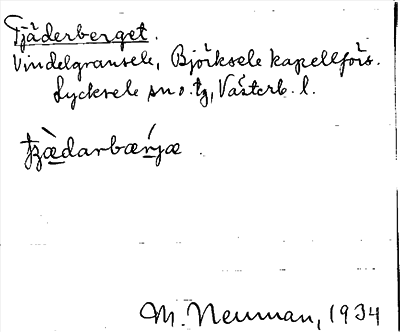 Tjäderberget.
Vindelgransele, Björksele kapellförs.
Lycksele sn o. tg, Västerb. l.
M. Neuman, 1934